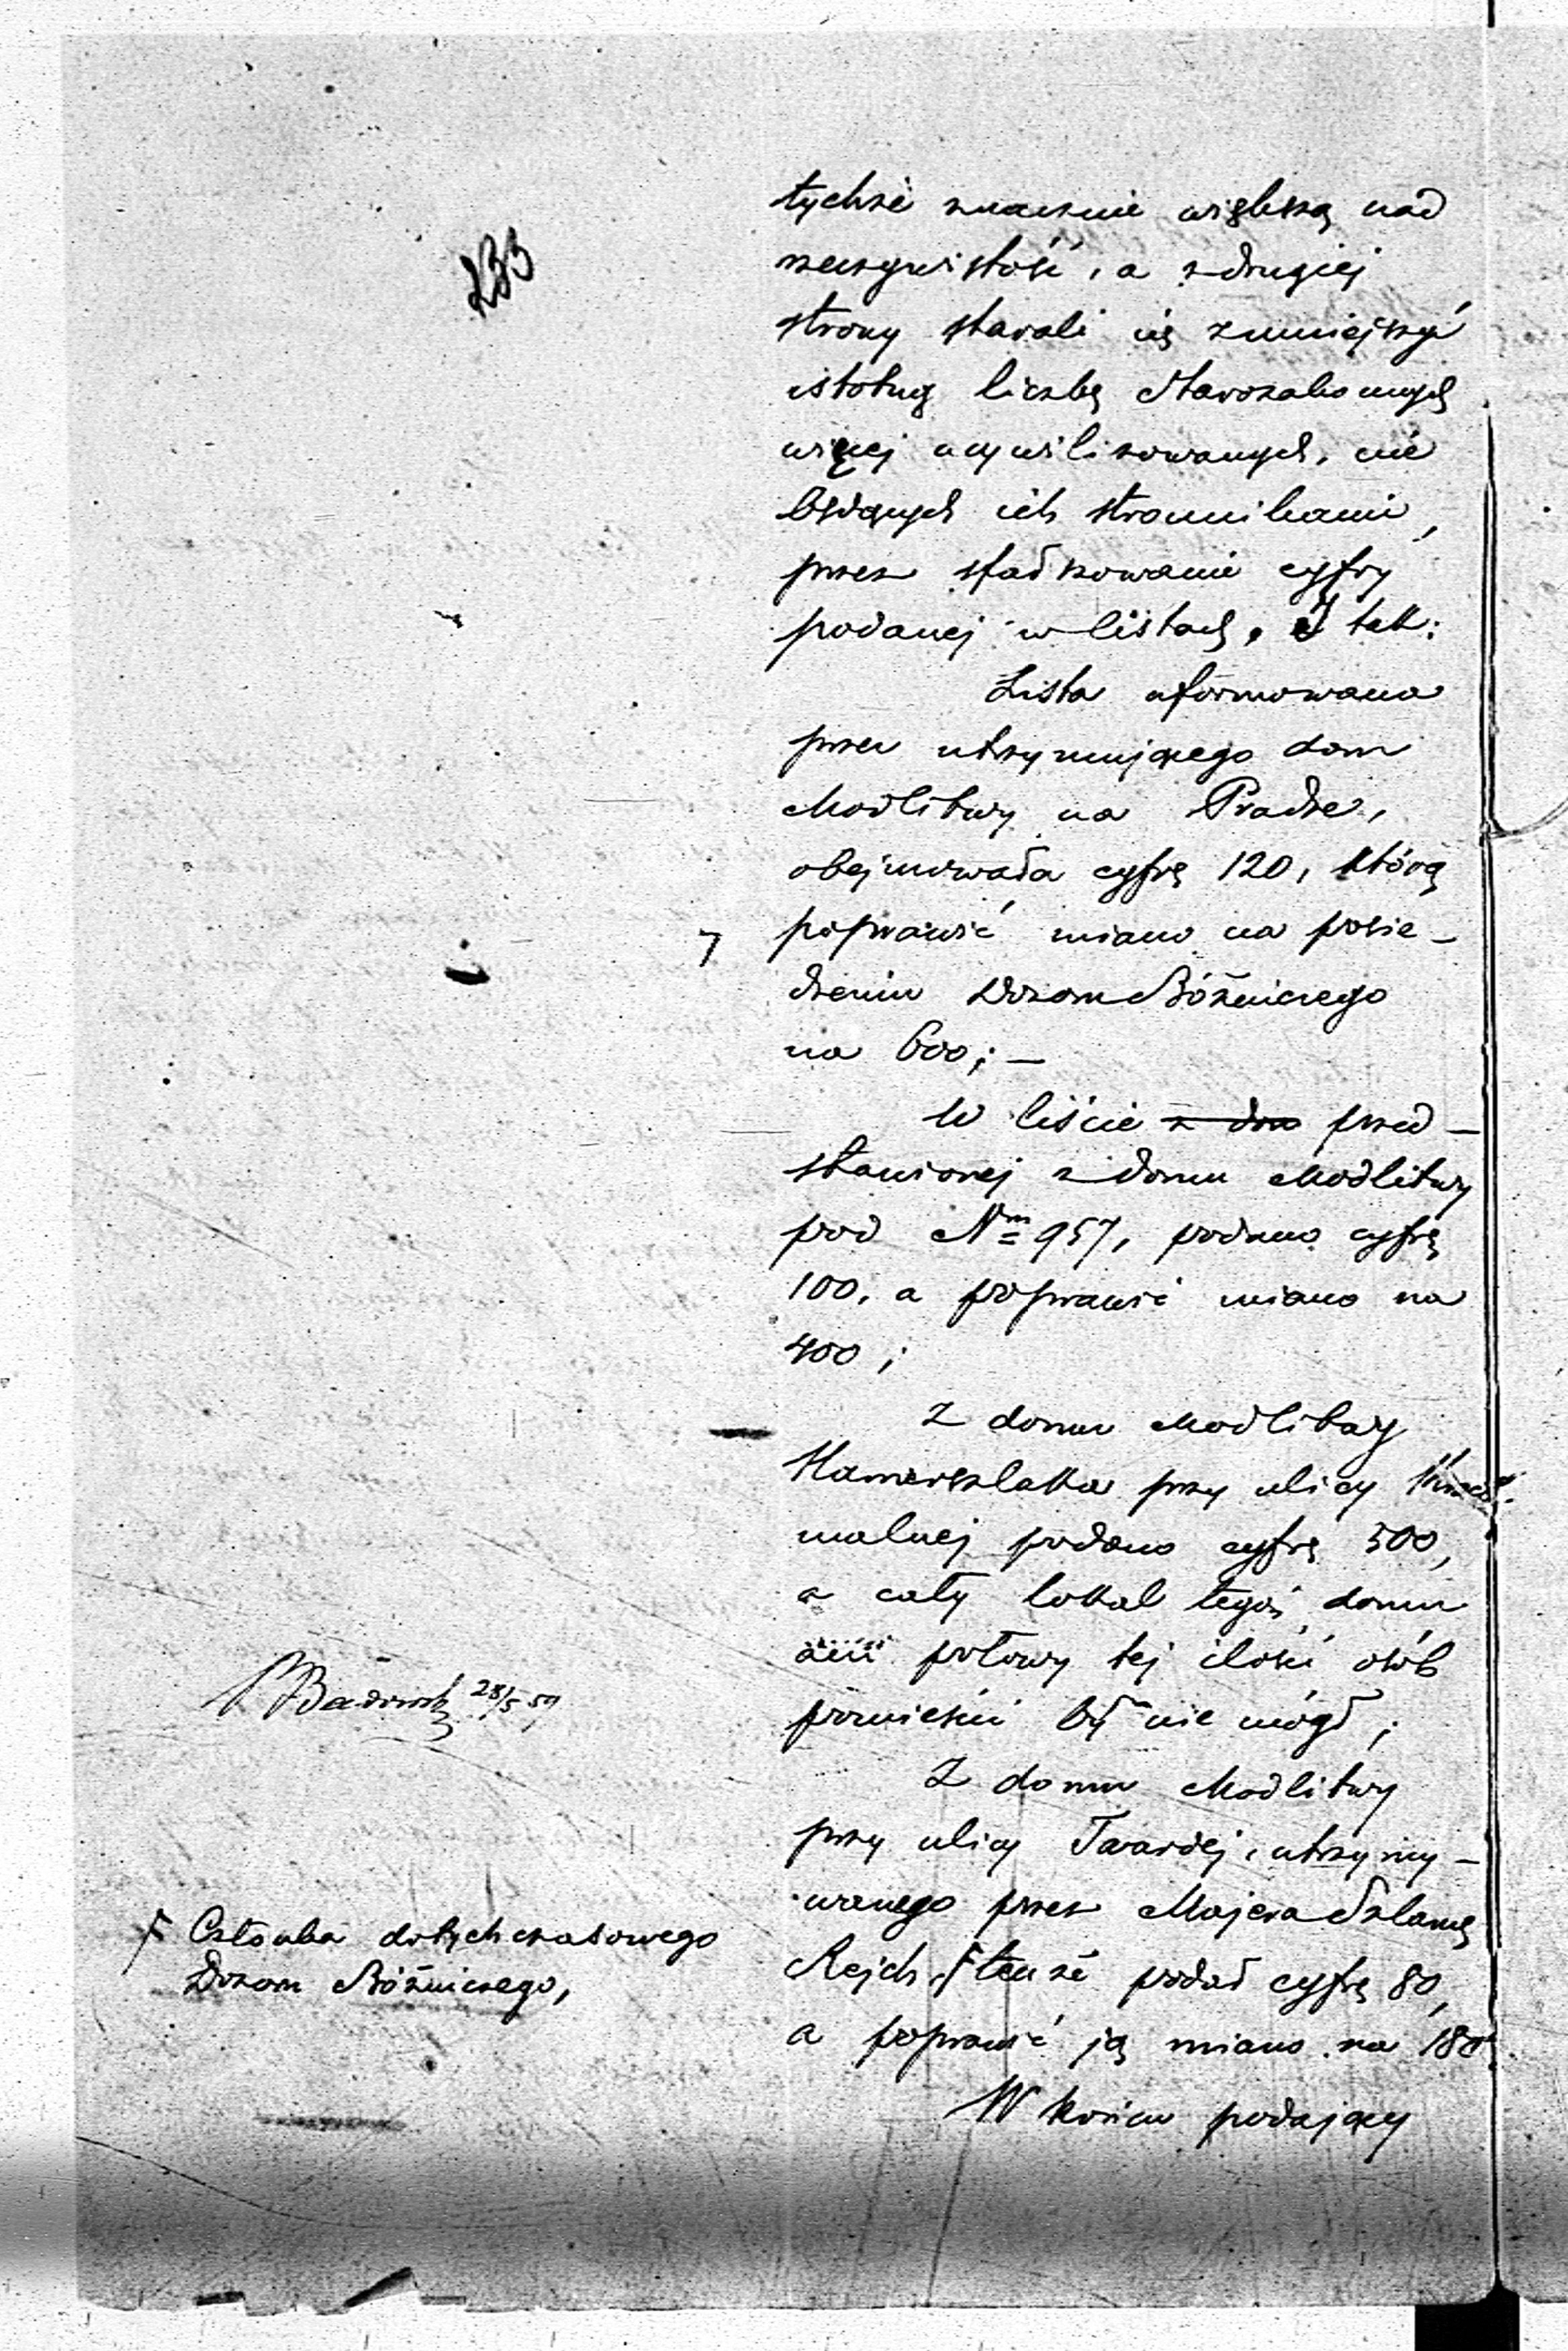 233
tychże znacznie większą nad
rzeczywistość, a z drugiej
strony starali się zmniejszyć
istotną liczbę Starozakonnych
więcej ucywilizowanych, nie
będących ich stronnikami,
przez sfałszowanie cyfry
podanej w listach. I tak:
Lista uformowana
przez utrzymującego dom
Modlitwy na Pradze,
obejmowała cyfrę 120, którą
poprawić miano na posie-
dzeniu Dozoru Bóżniczego
na 600; —
W liście z do przed-
stawionej z domu Modlitwy
pod Nm 957, podano cyfrę
100, a poprawić miano na
400;
Z domu Modlitwy
Hamerszlaka przy ulicy Kroch-
malnej podano cyfrę 500,
a cały lokal tegoż domu
ani połowy tej ilości osób
pomieścić by nie mógł;
Z domu Modlitwy
przy ulicy Twardej, utrzymy-
wanego przez Majera Szlamę
Rejch, F tenże podał cyfrę 80,
a poprawić ją miano na 180.
W końcu podający
28/5 59
F Członka dotychczasowego
Dozoru Bóżniczego,